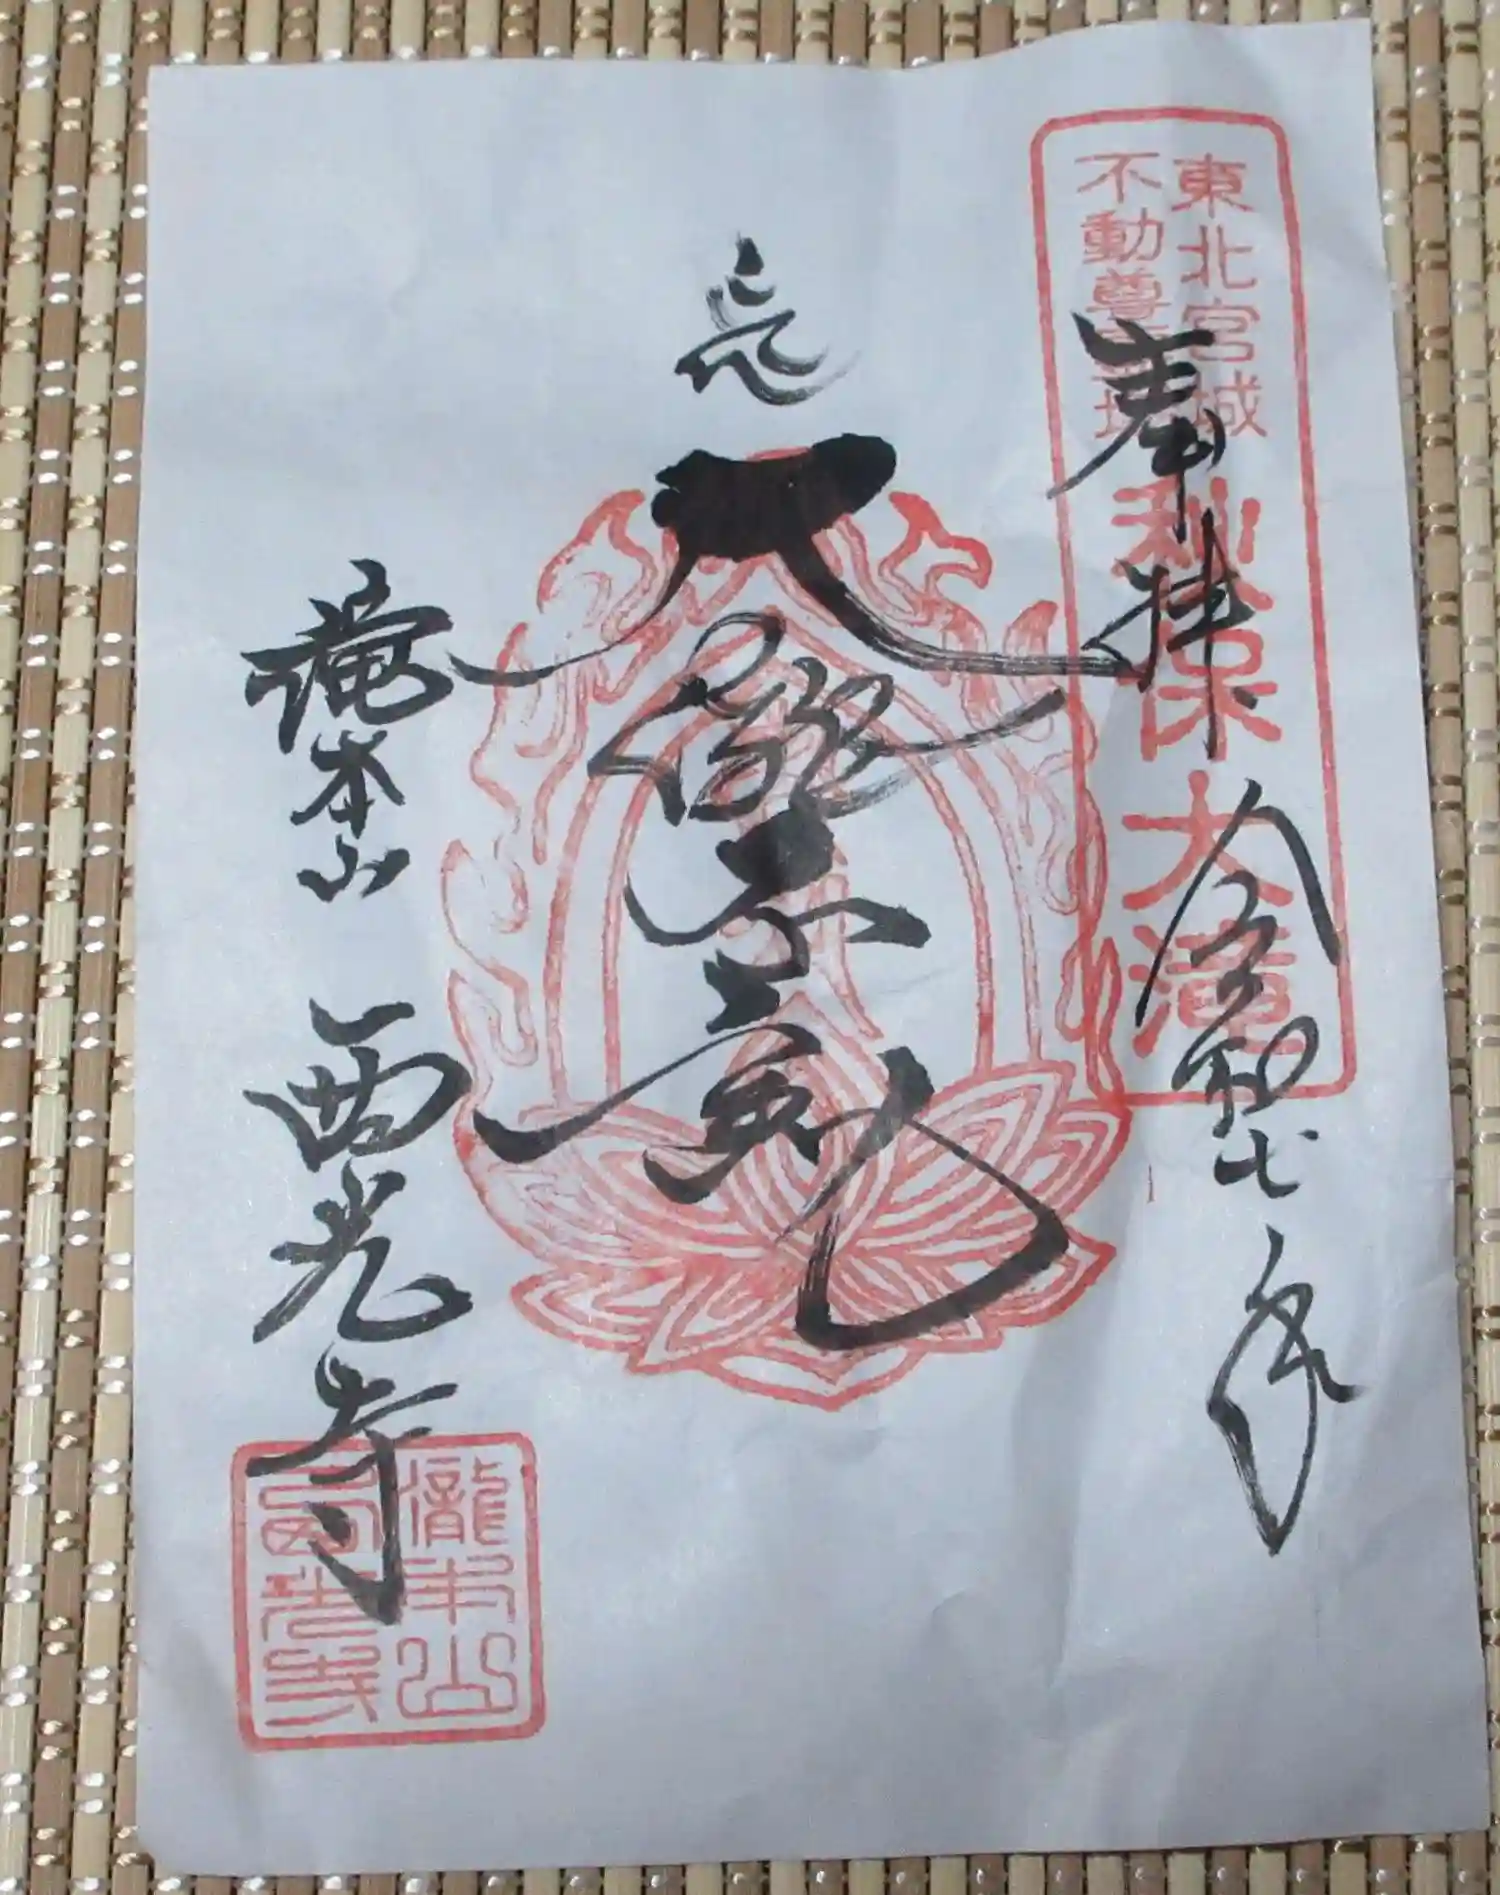 東北宮城
不動尊
秋保大滝
奉拝
令和七年
不動
滝本山 西光寺
瀧本山
西光寺